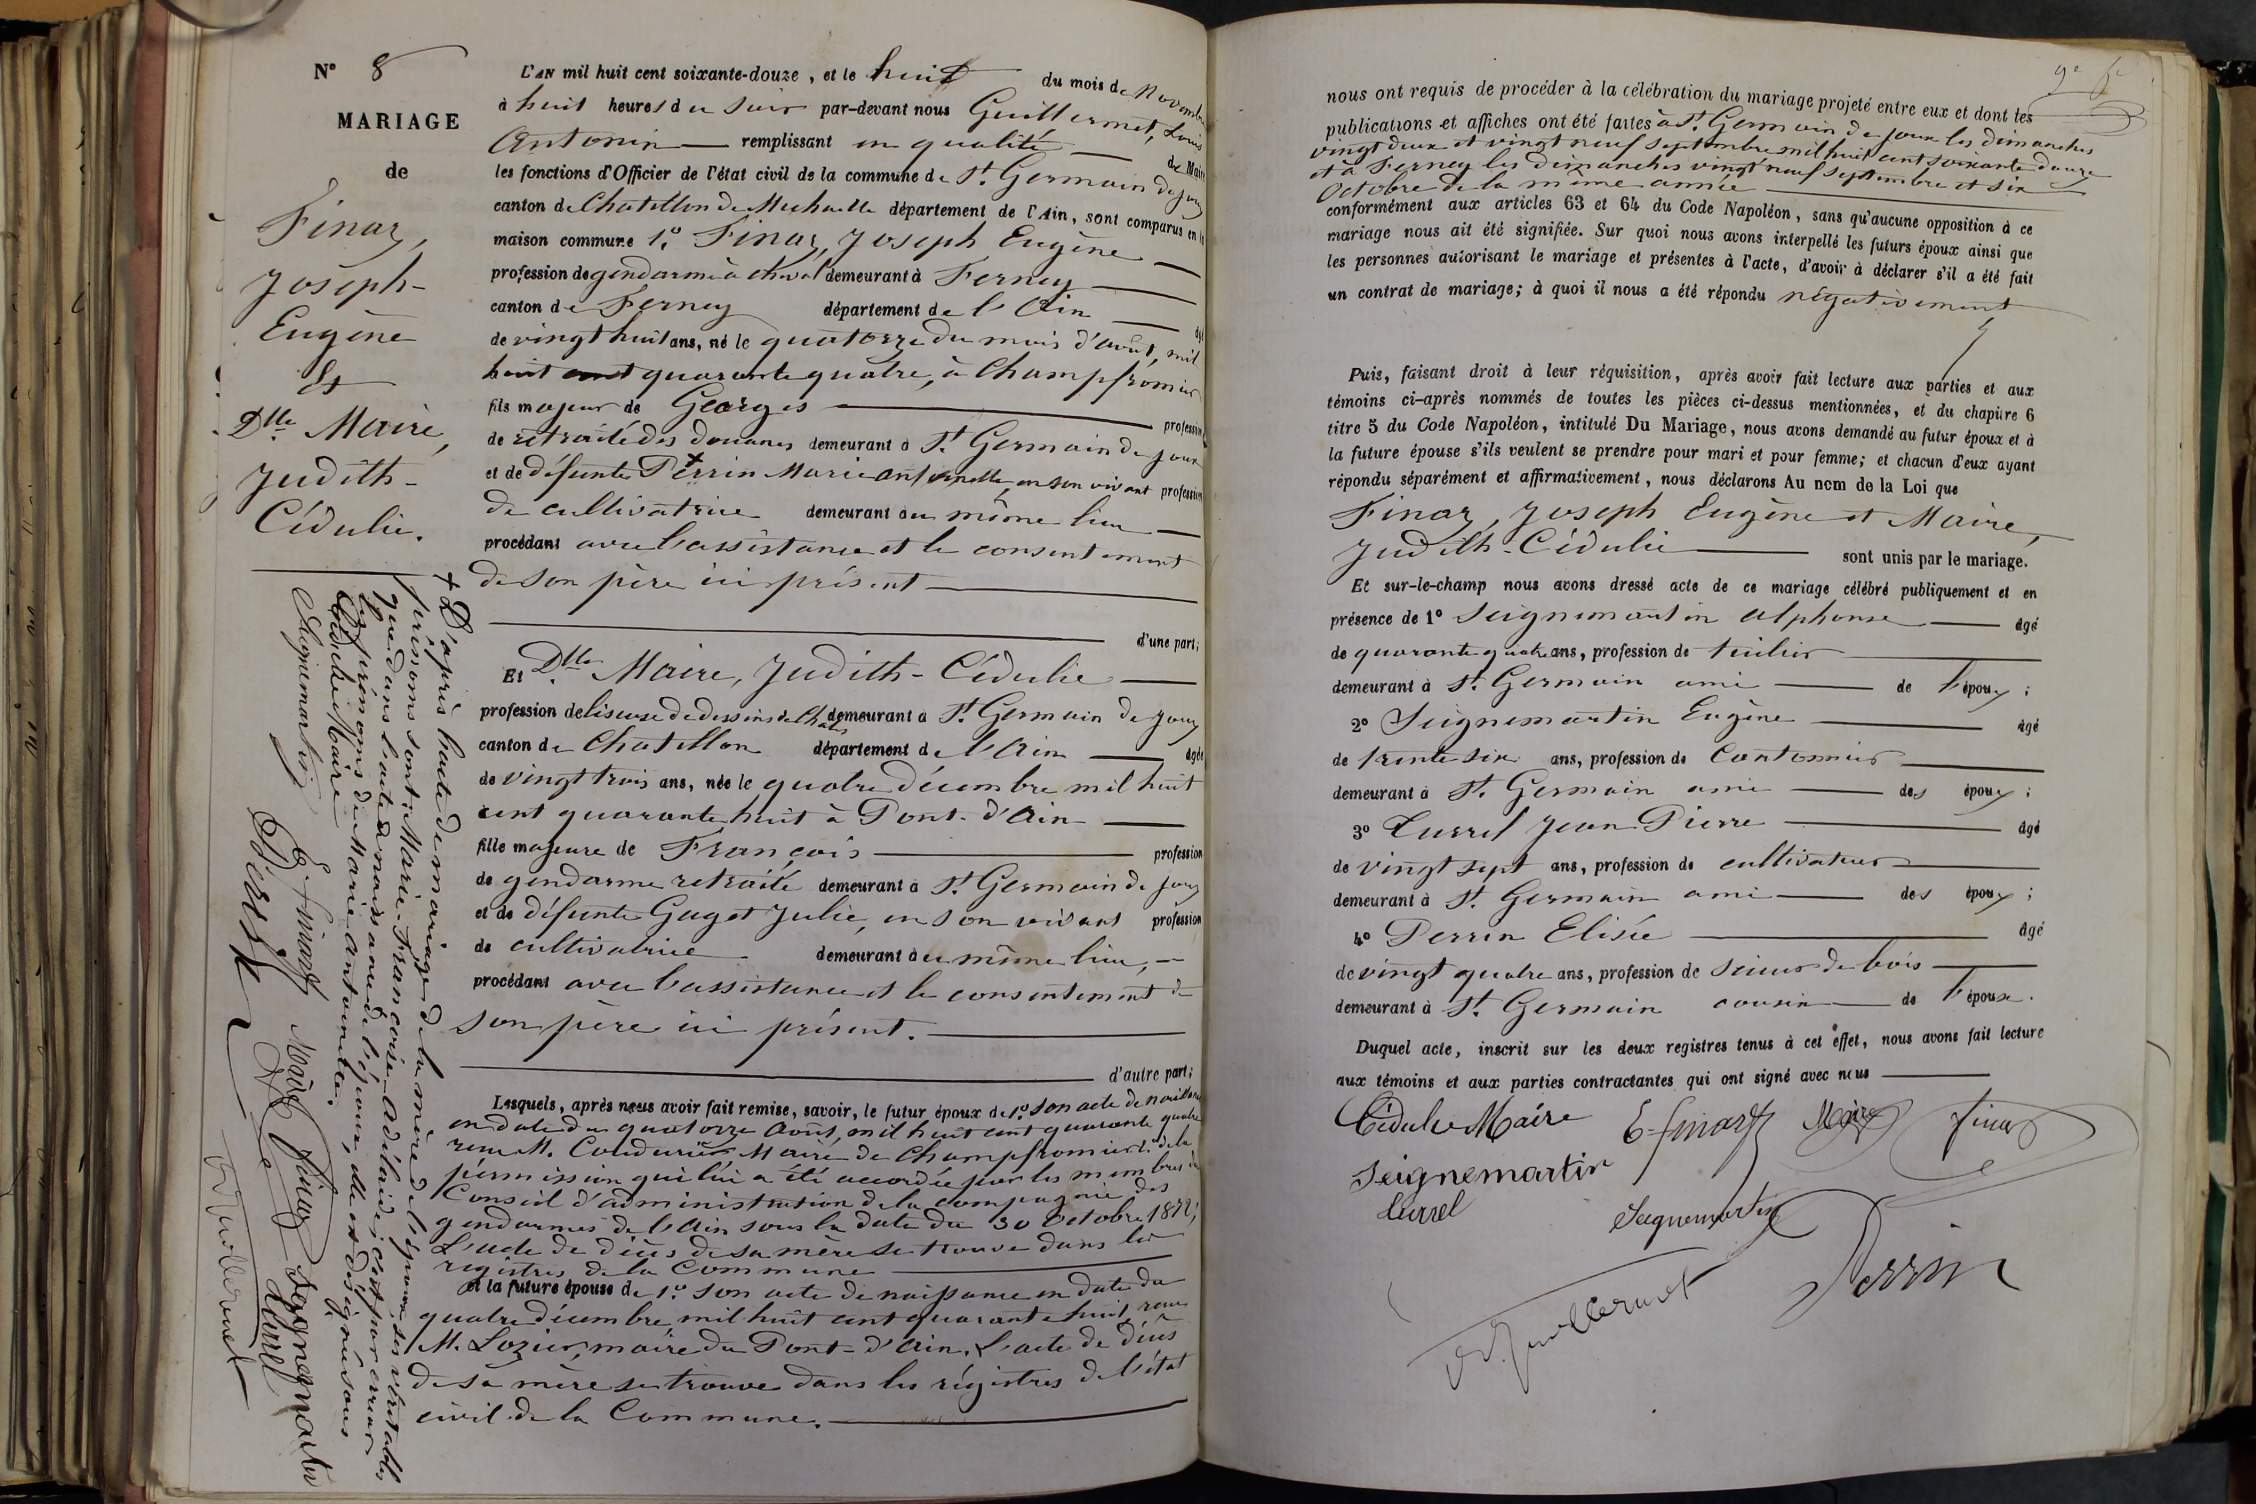 N° 8
MARIAGE
de
Finaz,
Joseph-
Eugène
Et
Dlle Maire,
Judith-
Cédulie.
+ D'après l'acte de mariage de la mère de l'époux, ses véritables
prénoms sont: Marie-Françoise-Adélaïde; c'est par erreur
que dans l'acte de naissance de l'époux, elle est désignée sous
les prénoms de Marie Antoinette.
Cédulie Maire E. finaz Maire finaz Seignemartin
Seignemartin Perrin Curvel
Guillermet
L'AN mil huit cent soixante-douze, et le huit du mois de Novembre
à huit heures du soir par-devant nous Guillermet, Louis
Antonin — remplissant en qualité — de Maire
les fonctions d'Officier de l'état civil de la commune de St. Germain de Joux
canton de Chatillon de Michaille département de l'Ain, sont comparus en la
maison commune 1.° Finaz, Joseph Eugène —
profession de gendarme à cheval demeurant à Ferney —
canton de Ferney département de l'Ain — âgé
de vingt huit ans, né le quatorze du mois d'août, mil
huit cent quarante quatre, à Champfromier
fils majeur de Georges — profession
de retraité des douanes demeurant à St. Germain de Joux
et de défunte Perrin + Marie Antoinette, en son vivant profession
de cultivatrice demeurant au même lieu —
procédant avec l'assistance et le consentement
de son père ici présent —
d'une part;
Et Dlle Maire, Judith-Cédulie —
profession de liseuse de dessins de Châles demeurant à St. Germain de Joux
canton de Chatillon département de l'Ain — âgée
de vingt trois ans, née le quatre décembre mil huit
cent quarante huit à Pont-d'Ain —
fille majeure de François — profession
de gendarme retraité demeurant à St. Germain de Joux
et de défunte Guget Julie, en son vivant profession
de cultivatrice demeurant au même lieu, —
procédant avec l'assistance et le consentement de
son père ici présent. —
d'autre part;
Lesquels, après nous avoir fait remise, savoir, le futur époux de 1.° son acte de naissance
en date du quatorze Août, mil huit cent quarante quatre
reçu M. Coudurier Maire de Champfromier 2.° de la
permission qui lui a été accordée par les membres du
Conseil d'administration de la compagnie des
gendarmes de l'Ain sous la date du 30 octobre 1872;
L'acte de décès de sa mère se trouve dans les
registres de la Commune —
et la future épouse de 1.° son acte de naissance en date du
quatre décembre mil huit cent quarante huit, reçu
M. Lozier, maire du Pont-d'Ain. L'acte de décès
de sa mère se trouve dans les régistres de l'état
civil de la Commune. —
9e fe
nous ont requis de procéder à la célébration du mariage projeté entre eux et dont les
publications et affiches ont été faites à St. Germain de Joux les dimanches
vingt deux et vingt neuf septembre mil huit cent soixante douze
et à Ferney les dimanches vingt neuf septembre et six
Octobre de la même année —
conformément aux articles 63 et 64 du Code Napoléon, sans qu'aucune opposition à ce
mariage nous ait été signifiée. Sur quoi nous avons interpellé les futurs époux ainsi que
les personnes autorisant le mariage et présentes à l'acte, d'avoir à déclarer s'il a été fait
un contrat de mariage; à quoi il nous a été répondu négativement
Puis, faisant droit à leur réquisition, après avoir fait lecture aux parties et aux
témoins ci-après nommés de toutes les pièces ci-dessus mentionnées, et du chapitre 6
titre 5 du Code Napoléon, intitulé Du Mariage, nous avons demandé au futur époux et à
la future épouse s'ils veulent se prendre pour mari et pour femme; et chacun d'eux ayant
répondu séparément et affirmativement, nous déclarons Au nom de la Loi que
Finaz, Joseph Eugène et Maire,
Judith-Cédulie — sont unis par le mariage.
Et sur-le-champ nous avons dressé acte de ce mariage célébré publiquement et en
présence de 1° Seignemartin Alphonse — âgé
de quarante quatre ans, profession de tuilier —
demeurant à St. Germain ami — de l'époux;
2° Seignemartin Eugène — âgé
de trente six ans, profession de Cantonnier —
demeurant à St. Germain ami — des époux;
3° Curvel Jean Pierre — âgé
de vingt sept ans, profession de cultivateur —
demeurant à St. Germain ami — des époux;
4° Perrin Elisée — âgé
de vingt quatre ans, profession de scieur de bois —
demeurant à St. Germain cousin — de l'épouse.
Duquel acte, inscrit sur les deux registres tenus à cet effet, nous avons fait lecture
aux témoins et aux parties contractantes qui ont signé avec nous —
Cédulie Maire E. finaz Maire finaz
Seignemartin
Curvel Seignemartin
Perrin
Guillermet